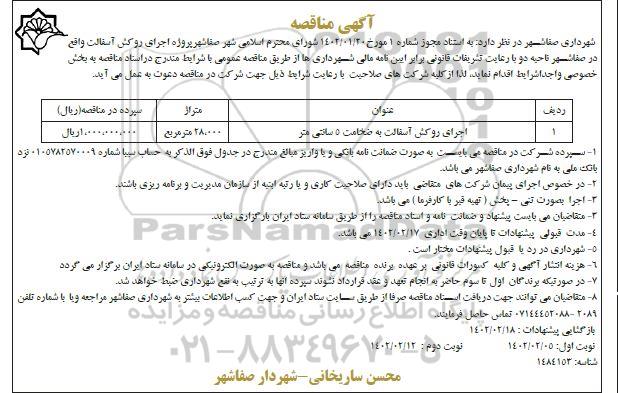 آگهی مناقصه
شهرداری صفاشهر در نظر دارد: به استناد مجوز شماره ۱ مورخ ۱۴۰۲/۰۱/۲۰ شورای محترم اسلامی شهر صفاشهر پروژه اجرای روکش آسفالت واقع
در صفاشهر ناحیه دو با رعایت تشریفات قانونی برابر آیین نامه مالی شهرداری ها از طریق مناقصه عمومی با شرایط مندرج در اسناد مناقصه به بخش
خصوصی واجد شرایط اقدام نماید، لذا از کلیه شرکت های صلاحیت با رعایت شرایط ذیل جهت شرکت در مناقصه دعوت به عمل می آید.
ردیف عنوان متراژ سپرده در مناقصه(ریال)
۱ اجرای روکش آسفالت به ضخامت ۵ سانتی متر ۲۸،۰۰۰ مترمربع ۱،۰۰۰،۰۰۰،۰۰۰ریال
۱- سپرده شرکت در مناقصه می بایست به صورت ضمانت نامه بانکی و یا واریز مبالغ مندرج در جدول فوق الذکر به حساب سیبا شماره ۰۱۰۵۷۸۲۵۷۰۰۰۹ نزد
بانک ملی به نام شهرداری صفاشهر می باشد.
۲- در خصوص اجرای پیمان شرکت های متقاضی باید دارای صلاحیت کاری و یا رتبه ابنیه از سازمان مدیریت و برنامه ریزی باشند.
۳- اجرا بصورت تنی – پخش ( تهیه قیر با کارفرما ) می باشد.
۳- متقاضیان می بایست پیشنهاد و ضمانت نامه و اسناد مناقصه را از طریق سامانه ستاد ایران بارگزاری نماید.
۴- مدت قبولی پیشنهادات تا پایان وقت اداری ۱۴۰۲/۰۲/۱۷ می باشد.
۵- شهرداری در رد یا قبول پیشنهادات مختار است .
۶- هزینه انتشار آگهی و کلیه کسورات قانونی بر عهده برنده مناقصه می باشد و مناقصه به صورت الکترونیکی در سامانه ستاد ایران برگزار می گردد
۷- در صورتیکه برندگان اول تا سوم حاضر به انجام تعهد و عقد قرارداد نشوند سپرده آنها به ترتیب به نفع شهرداری ضبط خواهد شد.
۸- متقاضیان می توانند جهت دریافت اسناد مناقصه صرفا از طریق سایت ستاد ایران و جهت کسب اطلاعات بیشتر به شهرداری صفاشهر مراجعه و یا با شماره تلفن
۰۷۱۴۴۴۵۲۰۸۸-۲۰۸۹ تماس حاصل فرمایند.
بازگشایی پیشنهادات : ۱۴۰۲/۰۲/۱۸
نوبت اول: ۱۴۰۲/۰۲/۰۵ نوبت دوم : ۱۴۰۲/۰۲/۱۲
شناسه: ۱۴۸۴۱۵۳
محسن ساریخانی-شهردار صفاشهر
ParsNamadData
پایگاه اطلاع رسانی مناقصه و مزایده
۰۲۱-۸۸۳۴۹۶۷۰-۵